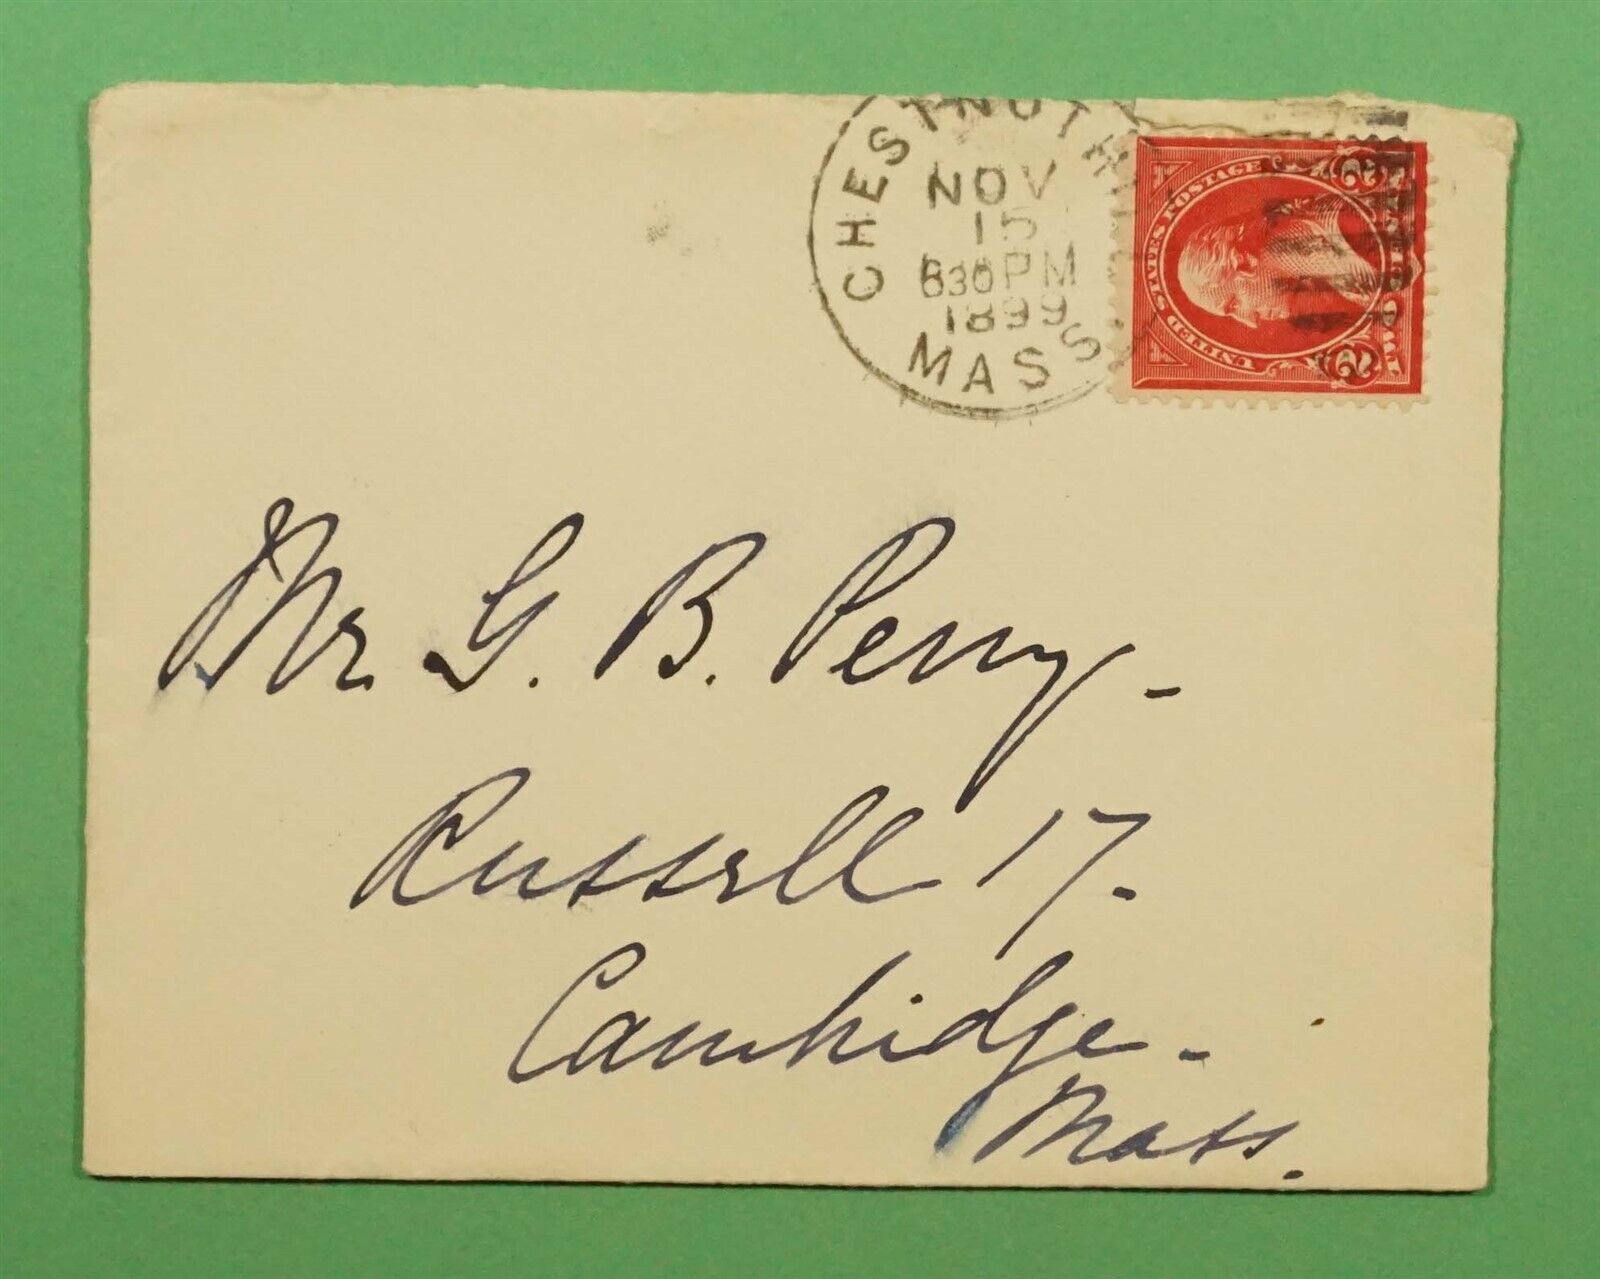 CHESTNUT HILL
NOV
15
630PM
1899
MASS.
UNITED STATES POSTAGE
2 2
Mr. G. B. Perry-
Russell 17.
Cambridge-
Mass.